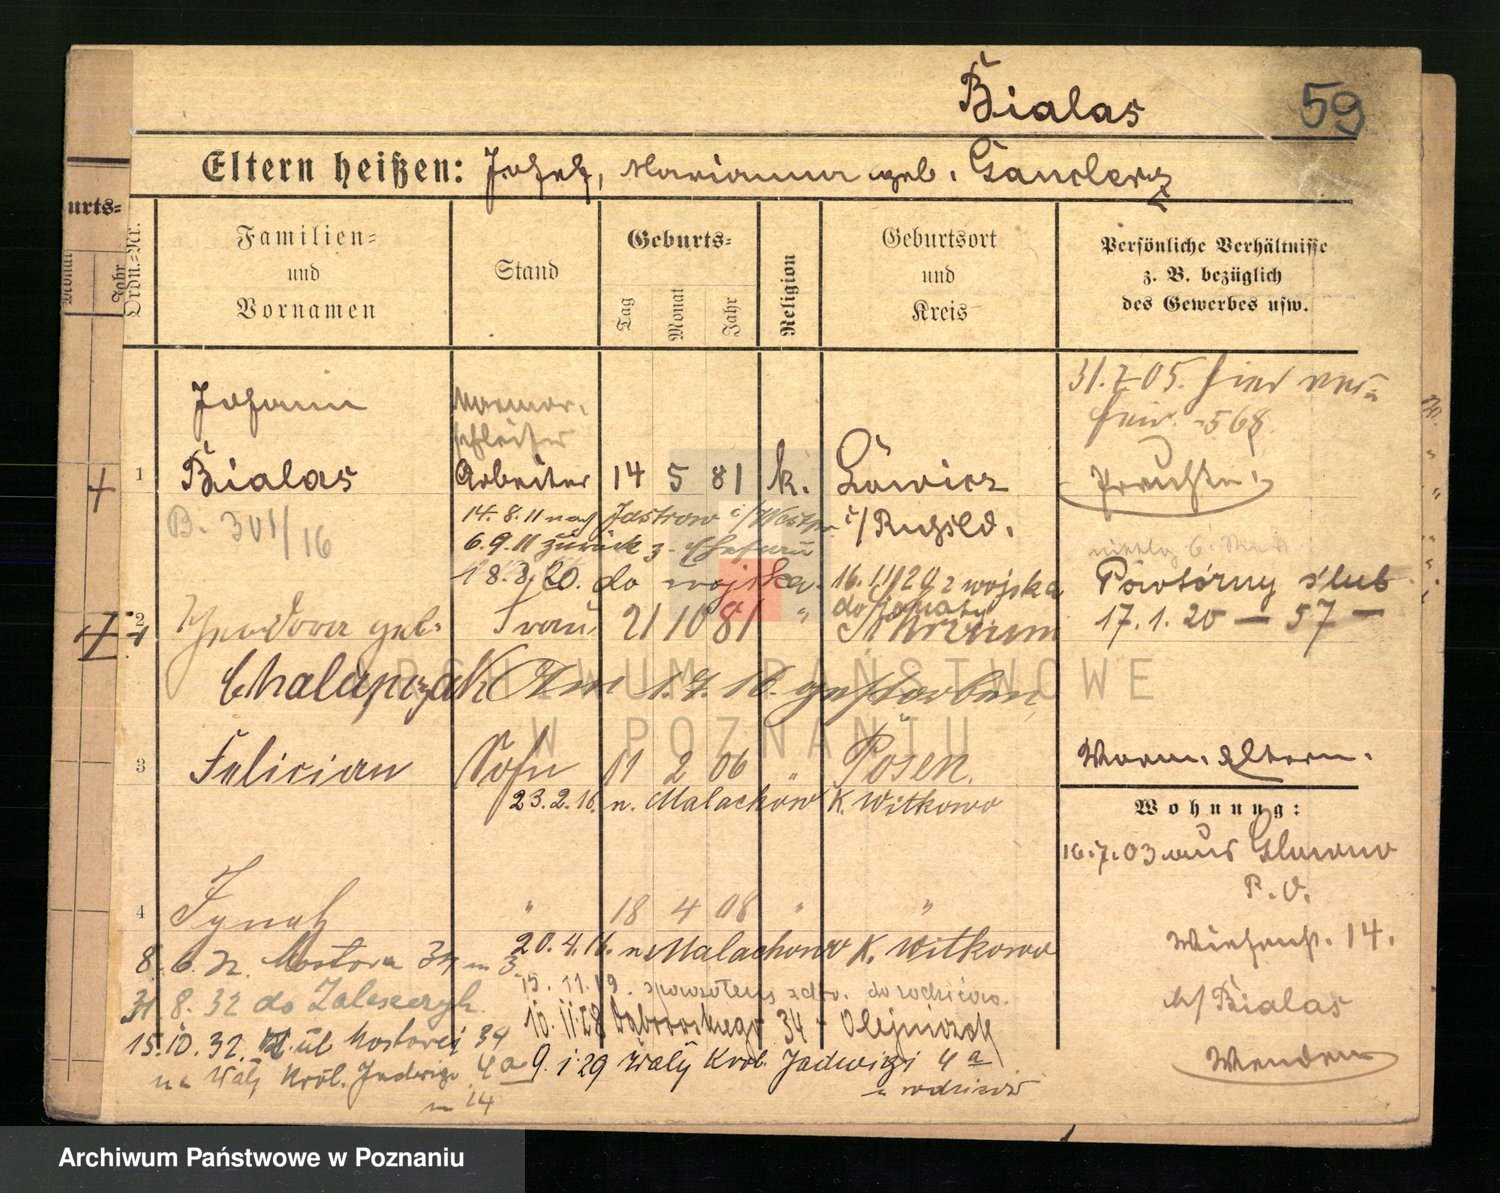 Bialas
59
Eltern heißen: Josef, Marianna geb. Ganclerz
urts=
Monat
Jahr
Ordn.=Nr.
Familien=
und
Vornamen
Stand
Geburts=
Tag
Monat
Jahr
Religion
Geburtsort
und
Kreis
Persönliche Verhältnisse
z. B. bezüglich
des Gewerbes usw.
31.7.05. hier ver=
heir. 568.
Johann
Marmor=
schleifer
1 Bialas Arbeiter 14 5 81 k. Łowicz
i/Russld.
B. 301/16
14.8.11 nach Jastrow i/Westpr.
6.9.11 zurück z. Ehefrau
18.8.20. do wojska. 16.11.20 z wojska
Powtórny ślub
17.1.20 – 57 –
2 Theodora geb. Frau 21 10 81 "
Chalapczak Am 1.7.16. gestorben
3 Felician Sohn 11 2 06 " Posen.
23.2.16. n. Malachowo K. Witkowo
Vorm. Eltern.
Wohnung:
16.7.03 aus Glowno
P. O.
Wiesenstr. 14.
b/Bialas
4 Ignatz " 18 4 08 " "
20.4.16. n. Malachowo K. Witkowo
8. 6. Mostowa
15.11.19. z powrotem do rodziców.
31 8. 32 do Zaleszczyk
10.11.28 Dąbrowskiego 34 – Olejniczak
15.10.32. ul Mostowej 34
9. 1 29 Wały Król. Jadwigi 4a
na Wały Król. Jadwigi 4a
u rodziców
m 14
ARCHIWUM PAŃSTWOWE
W POZNANIU
Archiwum Państwowe w Poznaniu